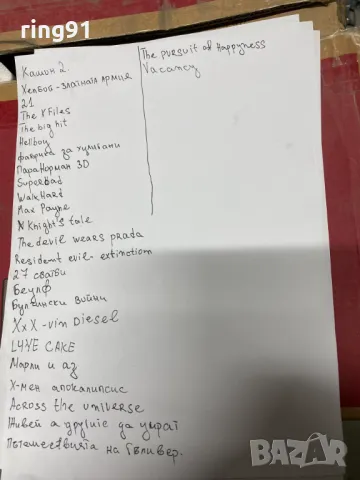 ring91
Кашон 2
Хелбой - златната армия
21
The X Files
The big hit
Hellboy
фабрика за хулигани
ПараНорман 3D
Superbad
Walk Hard
Max Payne
A Knight's tale
The devil wears prada
Resident evil - extinction
27 сватби
Беулф
Булчински войни
XxX - vin Diesel
LAYE CAKE
Марли и аз
Х-мен апокалипсис
Across the universe
Живей а другите да умрат
Пътешествията на Гъливер.
The pursuit of Happyness
Vacancy
BAZAR
bg